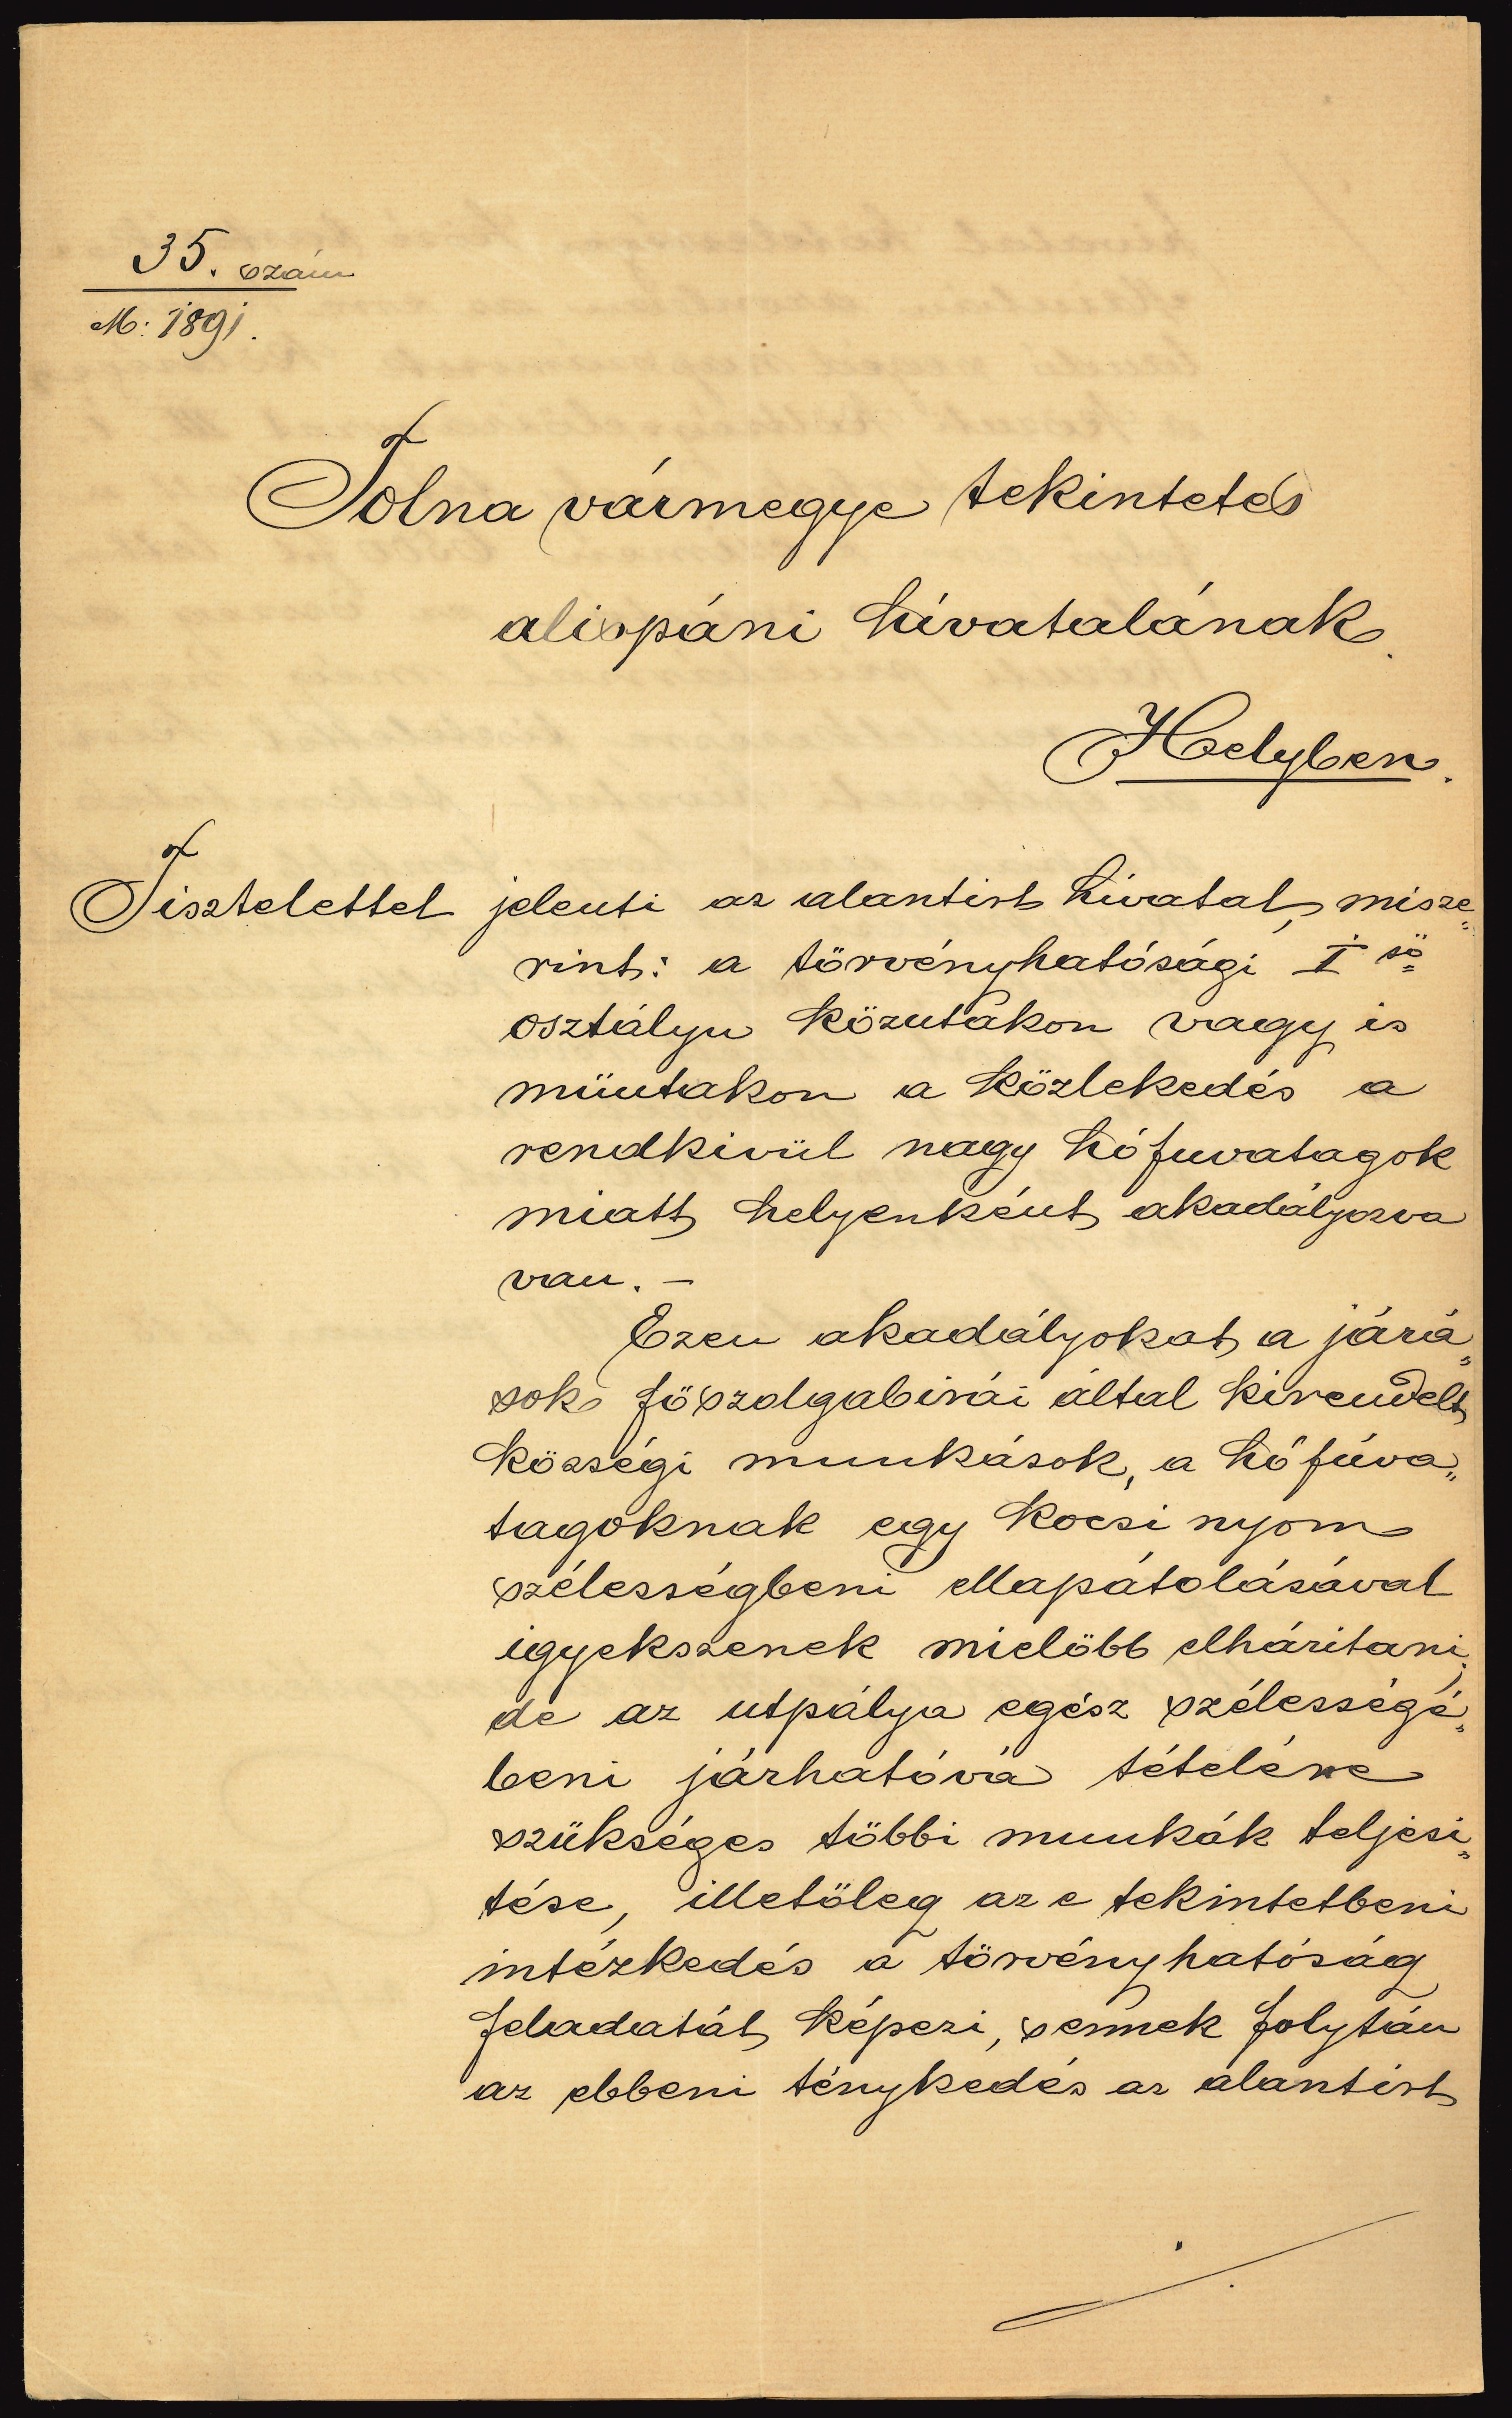 35. szám
M: 1891.
Tolna vármegye tekintetes
alispáni hivatalának.
Helyben.
Tisztelettel jelenti az alantirt hivatal, misze„
rint: a törvényhatósági I ső
osztályu közutakon vagy is
müutakon a közlekedés a
rendkivül nagy hófuvatagok
miatt helyenként akadályozva
van. –
Ezen akadályokat a járá„
sok föszolgabirái által kirendelt
községi munkások, a hófúva„
tagoknak egy kocsi nyom
szélességbeni ellapátolásával
igyekszenek mielöbb elháritani;
de az utpálya egész szélességé„
beni járhatóvá tételére
szükséges többi munkák teljesi„
tése, illetöleg az e tekintetbeni
intézkedés a törvényhatóság
feladatát képezi, s ennek folytán
az ebbeni ténykedés az alantirt
./.